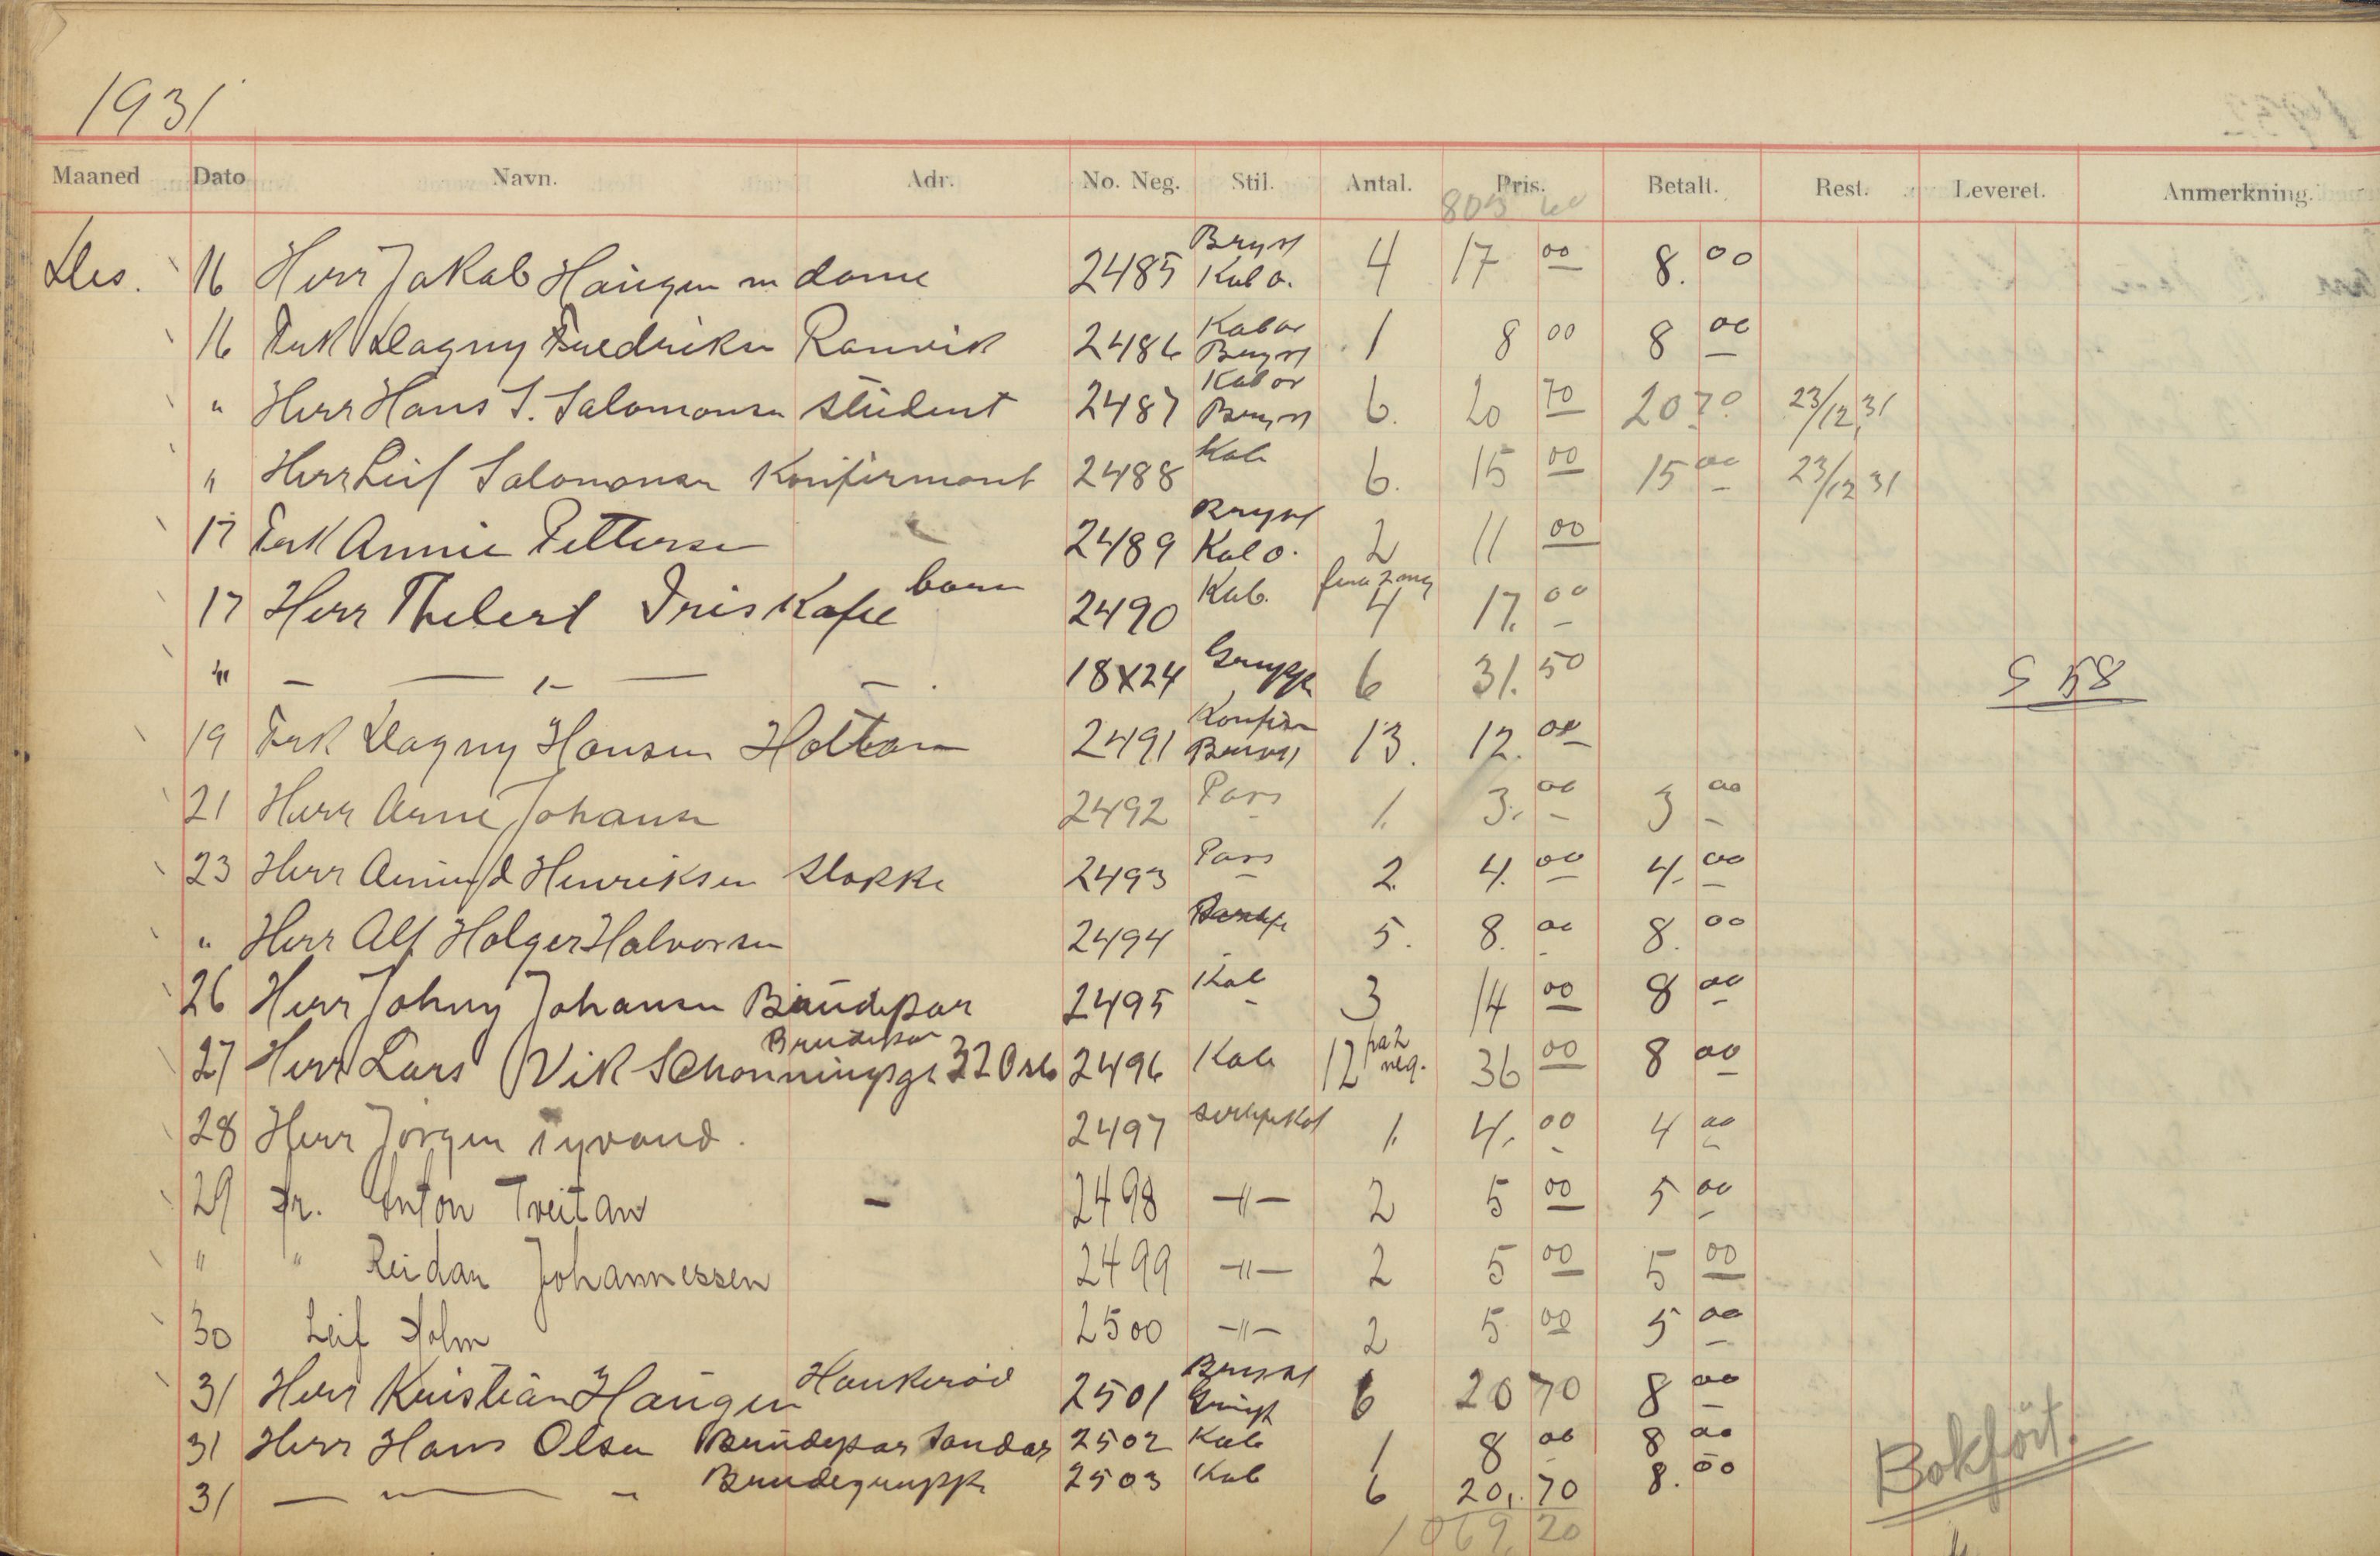 1931
Maaned Dato Navn. Adr. No. Neg. Stil. Antal. Pris. Betalt. Rest. Leveret. Anmerkning.
Des. 16 Herr Jakob Haugen m dame 2485 Bryst Kab o. 4 17 00 8.00
16 Frk Dagny Fredriksn Ranvik 2486 Kab or Bryst 1 8 00 8 00
" Herr Hans S. Salomonsn student 2487 Kab or Bryst 6. 20 70 20 70 23/12 31
" Herr Leif Salomonsn Konfirmant 2488 Kab 6. 15 00 15 00 23/12 31
17 Frk Annie Pettersn 2489 Bryst Kab o. 2 11 00
17 Herr Thelert Iris Kafe barn 2490 Kab. 4 17.00
" — " — 18X24 Gruppe 6 31.50
S 58
19 Frk Dagny Hansen Holtan 2491 Konfir 13. 12.00
21 Herr Arne Johansn 2492 Pas 1. 3.00 3 00
23 Herr Amund Henriksen Stokke 2493 Pass 2. 4.00 4.00
" Herr Alf Holger Halvorsen 2494 5. 8.00 8.00
26 Herr Johny Johansn Brudepar 2495 Kab 3 14 00 8 00
27 Herr Lars Vik Schonningsgt 32 Oslo Brudepar 2496 Kab 12 pa 2 neg. 36 00 8 00
28 Herr Jörgen Tyvand. 2497 1. 4.00 4 00
29 Hr. Anton Treitan — 2498 —"— 2 5 00 5 00
" " Reidar Johannessen 2499 —"— 2 5 00 5 00
30 Leif Holm 2500 —"— 2 5 00 5 00
31 Herr Kristian Haugen Haukeröd 2501 Bryst 6 20 70 8 00
31 Herr Hans Olsen Brudepar Sandar 2502 Kab 1 8 00 8 00
31 — " — Brudegruppe 2503 Kab 6 20.70 8.00
1069.20
Bokfört.